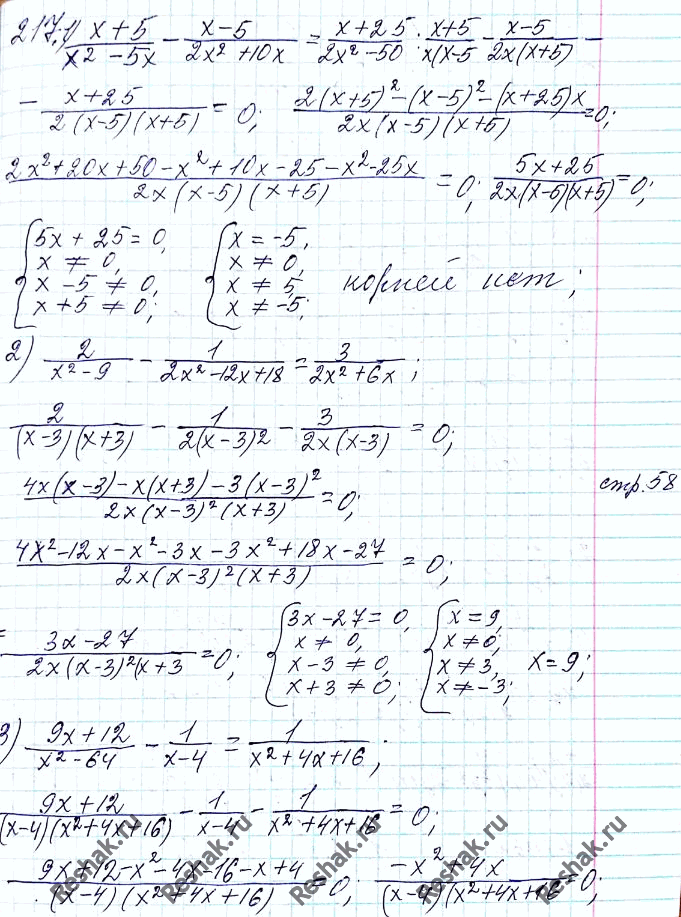 217.1) (x+5)/(x² -5x) - (x-5)/(2x²+10x) = (x+25)/(2x²-50) ; (x+5)/(x(x-5) - (x-5)/(2x(x+5)) -
- (x+25)/(2(x-5)(x+5)) = 0; (2(x+5)²-(x-5)²-(x+25)x)/(2x(x-5)(x+5)) =0;
(2x²+20x+50-x²+10x-25-x²-25x)/(2x(x-5)(x+5)) = 0; (5x+25)/(2x(x-5)(x+5)) =0;
{5x+25=0, {x=-5,
x≠0, x≠0,
x-5≠0, x≠5, корней нет;
x+5≠0; x≠-5;
2) 2/(x²-9) - 1/(2x²-12x+18) = 3/(2x²+6x) ;
2/((x-3)(x+3)) - 1/(2(x-3)²) - 3/(2x(x-3)) = 0;
(4x(x-3)-x(x+3)-3(x-3)²)/(2x(x-3)²(x+3)) =0; стр.58
(4x²-12x-x²-3x-3x²+18x-27)/(2x(x-3)²(x+3)) = 0;
= (3x-27)/(2x(x-3)²(x+3 =0; {3x-27=0, {x=9,
x≠0, x≠0,
x-3≠0, x≠3, x=9;
x+3≠0; x≠-3;
3) (9x+12)/(x²-64) - 1/(x-4) = 1/(x²+4x+16) ;
(9x+12)/((x-4)(x²+4x+16)) - 1/(x-4) - 1/(x²+4x+16) = 0;
(9x+12-x²-4x-16-x+4)/((x-4)(x²+4x+16)) =0; (-x²+4x)/((x-4)(x²+4x+16 =0;
Reshak.ru Reshak.ru Reshak.ru Reshak.ru Reshak.ru